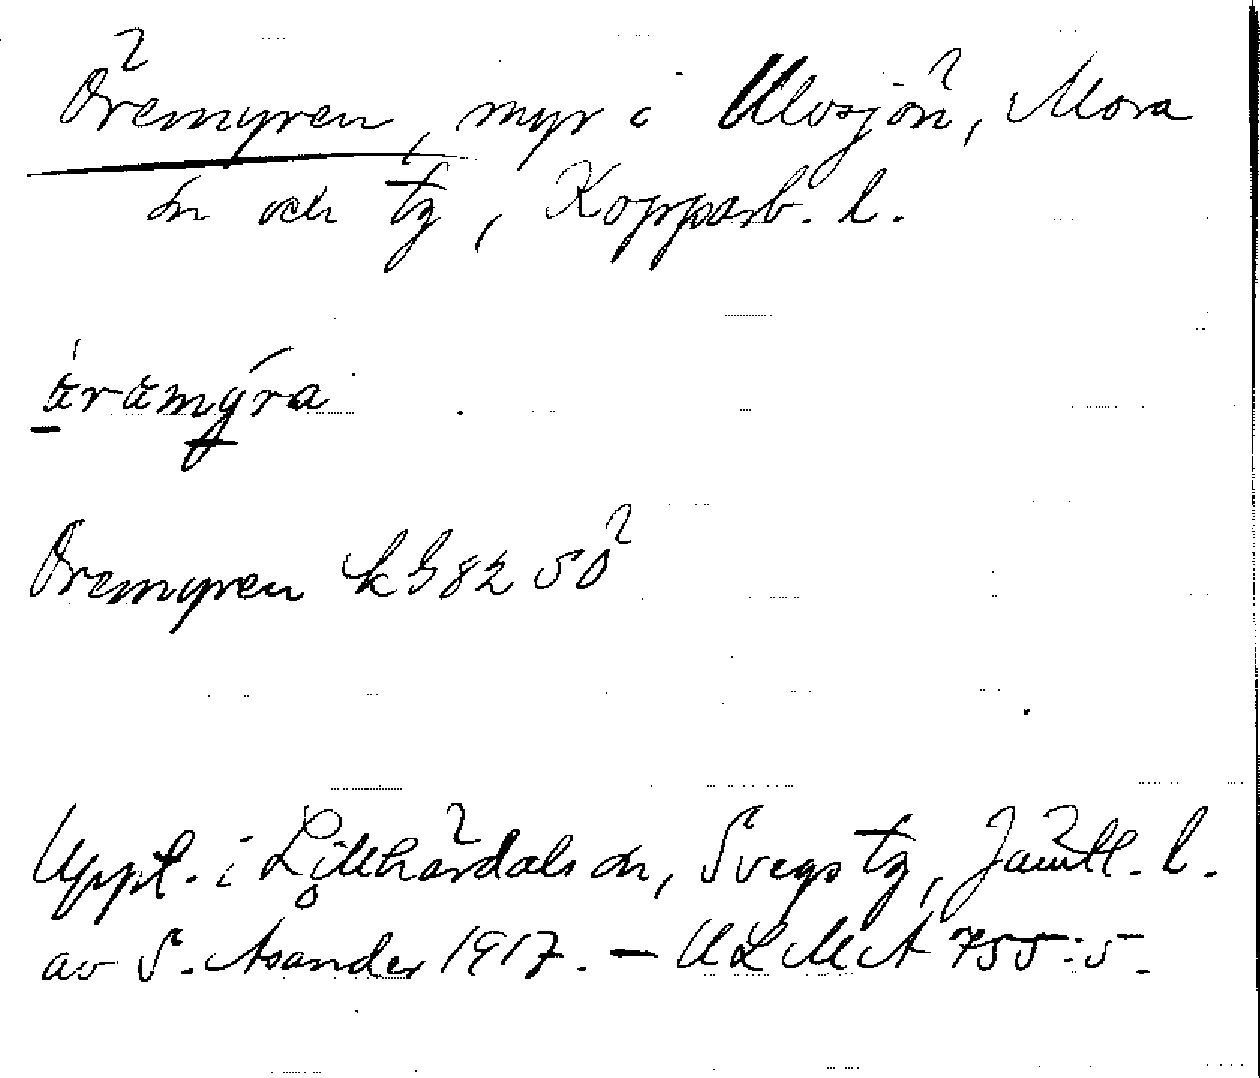 Öremyren, myr i Ulvsjön, Mora
sn och tg, Kopparb. l.
äramýra
Öremyren k G82 50
Uppt. i Lillhärdals sn, Svegs tg, Jämtl. l.
av S. Åsander 1917. – ULMA 755:5.